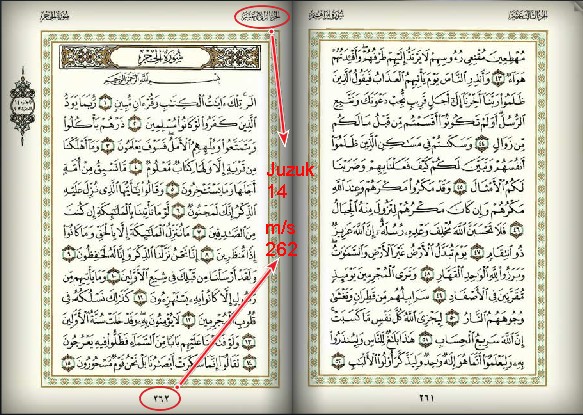 الجزء الثالث عشر
سورة إبراهيم
مُهْطِعِينَ مُقْنِعِى رُءُوسِهِمْ لَا يَرْتَدُّ إِلَيْهِمْ طَرْفُهُمْ وَأَفْـِٔدَتُهُمْ
هَوَآءٌ ٤٣ وَأَنذِرِ ٱلنَّاسَ يَوْمَ يَأْتِيهِمُ ٱلْعَذَابُ فَيَقُولُ ٱلَّذِينَ
ظَلَمُوا۟ رَبَّنَآ أَخِّرْنَآ إِلَىٰٓ أَجَلٍ قَرِيبٍ نُّجِبْ دَعْوَتَكَ وَنَتَّبِعِ
ٱلرُّسُلَ أَوَلَمْ تَكُونُوٓا۟ أَقْسَمْتُم مِّن قَبْلُ مَا لَكُم
مِّن زَوَالٍ ٤٤ وَسَكَنتُمْ فِى مَسَـٰكِنِ ٱلَّذِينَ ظَلَمُوٓا۟
أَنفُسَهُمْ وَتَبَيَّنَ لَكُمْ كَيْفَ فَعَلْنَا بِهِمْ وَضَرَبْنَا
لَكُمُ ٱلْأَمْثَالَ ٤٥ وَقَدْ مَكَرُوا۟ مَكْرَهُمْ وَعِندَ ٱللَّهِ
مَكْرُهُمْ وَإِن كَانَ مَكْرُهُمْ لِتَزُولَ مِنْهُ ٱلْجِبَالُ
٤٦ فَلَا تَحْسَبَنَّ ٱللَّهَ مُخْلِفَ وَعْدِهِۦ رُسُلَهُۥٓ إِنَّ ٱللَّهَ عَزِيزٌ
ذُو ٱنتِقَامٍ ٤٧ يَوْمَ تُبَدَّلُ ٱلْأَرْضُ غَيْرَ ٱلْأَرْضِ وَٱلسَّمَـٰوَٰتُ
وَبَرَزُوا۟ لِلَّهِ ٱلْوَٰحِدِ ٱلْقَهَّارِ ٤٨ وَتَرَى ٱلْمُجْرِمِينَ يَوْمَئِذٍ
مُّقَرَّنِينَ فِى ٱلْأَصْفَادِ ٤٩ سَرَابِيلُهُم مِّن قَطِرَانٍ وَتَغْشَىٰ
وُجُوهَهُمُ ٱلنَّارُ ٥٠ لِيَجْزِىَ ٱللَّهُ كُلَّ نَفْسٍ مَّا كَسَبَتْ
إِنَّ ٱللَّهَ سَرِيعُ ٱلْحِسَابِ ٥١ هَـٰذَا بَلَـٰغٌ لِّلنَّاسِ وَلِيُنذَرُوا۟
بِهِۦ وَلِيَعْلَمُوٓا۟ أَنَّمَا هُوَ إِلَـٰهٌ وَٰحِدٌ وَلِيَذَّكَّرَ أُو۟لُوا۟ ٱلْأَلْبَـٰبِ ٥٢
٢٦١
الجزء الرابع عشر
سورة الحجر
سُورَةُ الحِجْرِ
بِسْمِ ٱللَّهِ ٱلرَّحْمَـٰنِ ٱلرَّحِيمِ
الٓر تِلْكَ ءَايَـٰتُ ٱلْكِتَـٰبِ وَقُرْءَانٍ مُّبِينٍ ١ رُّبَمَا يَوَدُّ
ٱلَّذِينَ كَفَرُوا۟ لَوْ كَانُوا۟ مُسْلِمِينَ ٢ ذَرْهُمْ يَأْكُلُوا۟
وَيَتَمَتَّعُوا۟ وَيُلْهِهِمُ ٱلْأَمَلُ فَسَوْفَ يَعْلَمُونَ ٣ وَمَآ أَهْلَكْنَا
مِن قَرْيَةٍ إِلَّا وَلَهَا كِتَابٌ مَّعْلُومٌ ٤ مَّا تَسْبِقُ مِنْ أُمَّةٍ
أَجَلَهَا وَمَا يَسْتَـْٔخِرُونَ ٥ وَقَالُوا۟ يَـٰٓأَيُّهَا ٱلَّذِى نُزِّلَ عَلَيْهِ
ٱلذِّكْرُ إِنَّكَ لَمَجْنُونٌ ٦ لَّوْ مَا تَأْتِينَا بِٱلْمَلَـٰٓئِكَةِ إِن كُنتَ
مِنَ ٱلصَّـٰدِقِينَ ٧ مَا نُنَزِّلُ ٱلْمَلَـٰٓئِكَةَ إِلَّا بِٱلْحَقِّ وَمَا كَانُوٓا۟
إِذًا مُّنظَرِينَ ٨ إِنَّا نَحْنُ نَزَّلْنَا ٱلذِّكْرَ وَإِنَّا لَهُۥ لَحَـٰفِظُونَ ٩
وَلَقَدْ أَرْسَلْنَا مِن قَبْلِكَ فِى شِيَعِ ٱلْأَوَّلِينَ ١٠ وَمَا يَأْتِيهِم مِّن
رَّسُولٍ إِلَّا كَانُوا۟ بِهِۦ يَسْتَهْزِءُونَ ١١ كَذَٰلِكَ نَسْلُكُهُۥ فِى
قُلُوبِ ٱلْمُجْرِمِينَ ١٢ لَا يُؤْمِنُونَ بِهِۦ وَقَدْ خَلَتْ سُنَّةُ ٱلْأَوَّلِينَ
١٣ وَلَوْ فَتَحْنَا عَلَيْهِم بَابًا مِّنَ ٱلسَّمَآءِ فَظَلُّوا۟ فِيهِ يَعْرُجُونَ
١٤ لَقَالُوٓا۟ إِنَّمَا سُكِّرَتْ أَبْصَـٰرُنَا بَلْ نَحْنُ قَوْمٌ مَّسْحُورُونَ ١٥
٢٦٢
Juzuk
14
m/s
262